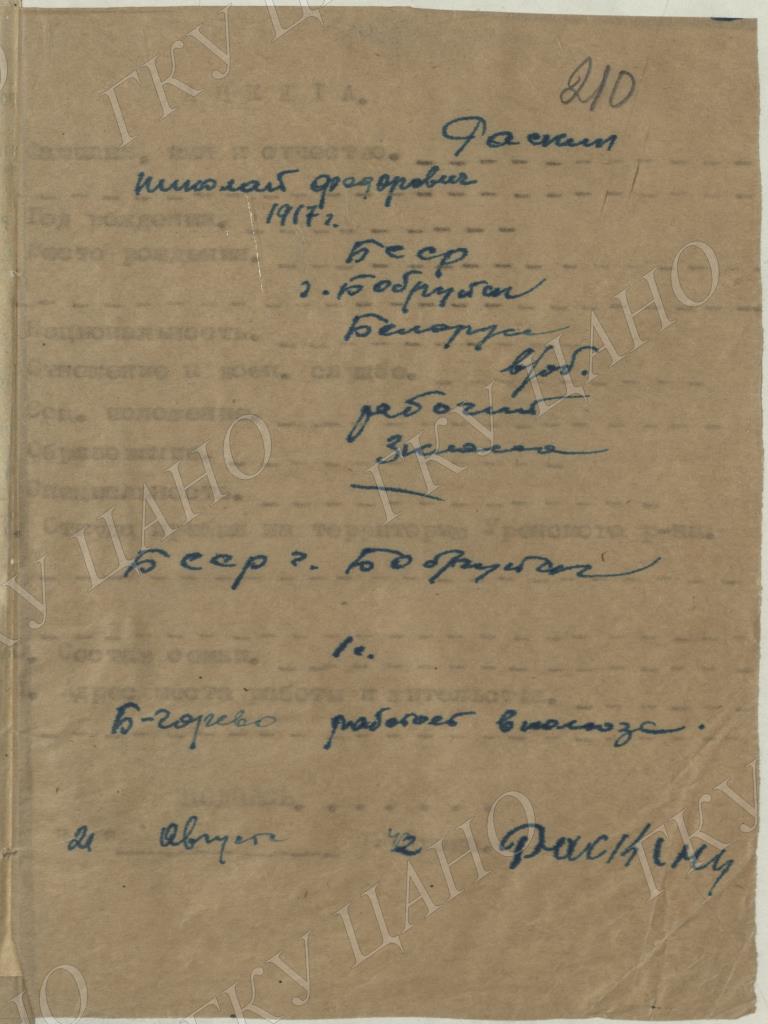 210
АНКЕТА.
Фамилия, имя и отчество. Раскин
Николай Федорович
Год рождения. 1917 г.
Место рождения. БССР
г. Бобруйск
Национальность. Белорус
Отношение к воен. службе. в/об.
Соц. положение. рабочий
Образование. 3 класса
Специальность. —
Откуда прибыл на территорию Уренского р-на.
БССР г. Бобруйск
Состав семьи. 1 ч.
Адрес места работы и жительства.
Б-Горево работает в колхозе.
Подпись.
21 Августа 42 Раскин
ГКУ ЦАНО